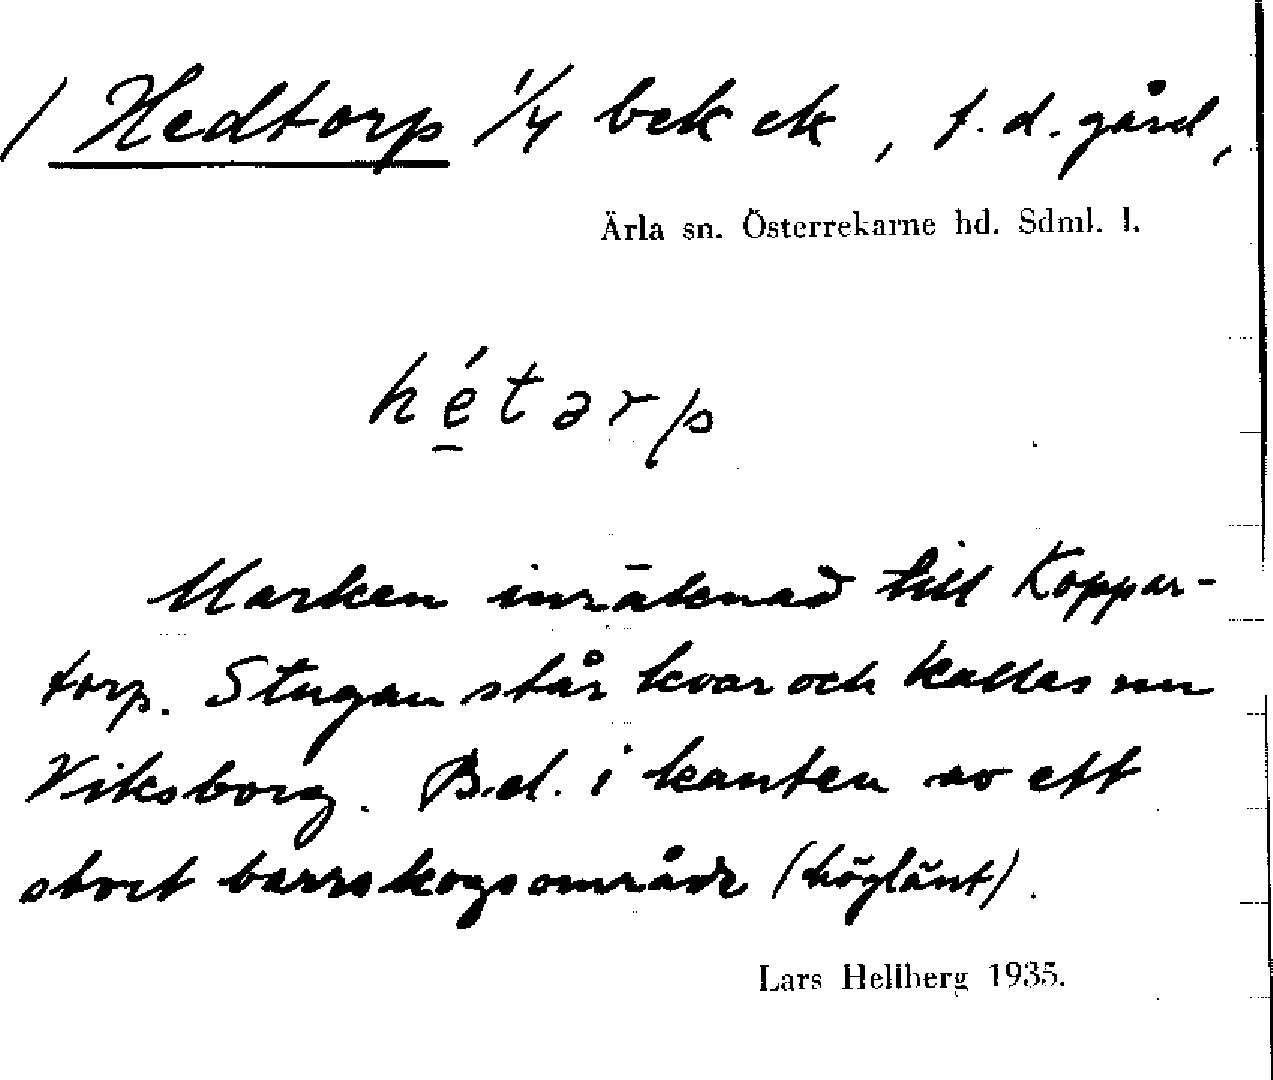 / Hedtorp 1/4 bek ek, f.d. gård,
Ärla sn. Österrekarne hd. Sdml. l.
hé̱tərp
Marken inräknad till Koppar-
torp. Stugan står kvar och kallas nu
Viksborg. Bel. i kanten av ett
stort barrskogsområde (höglänt).
Lars Hellberg 1935.